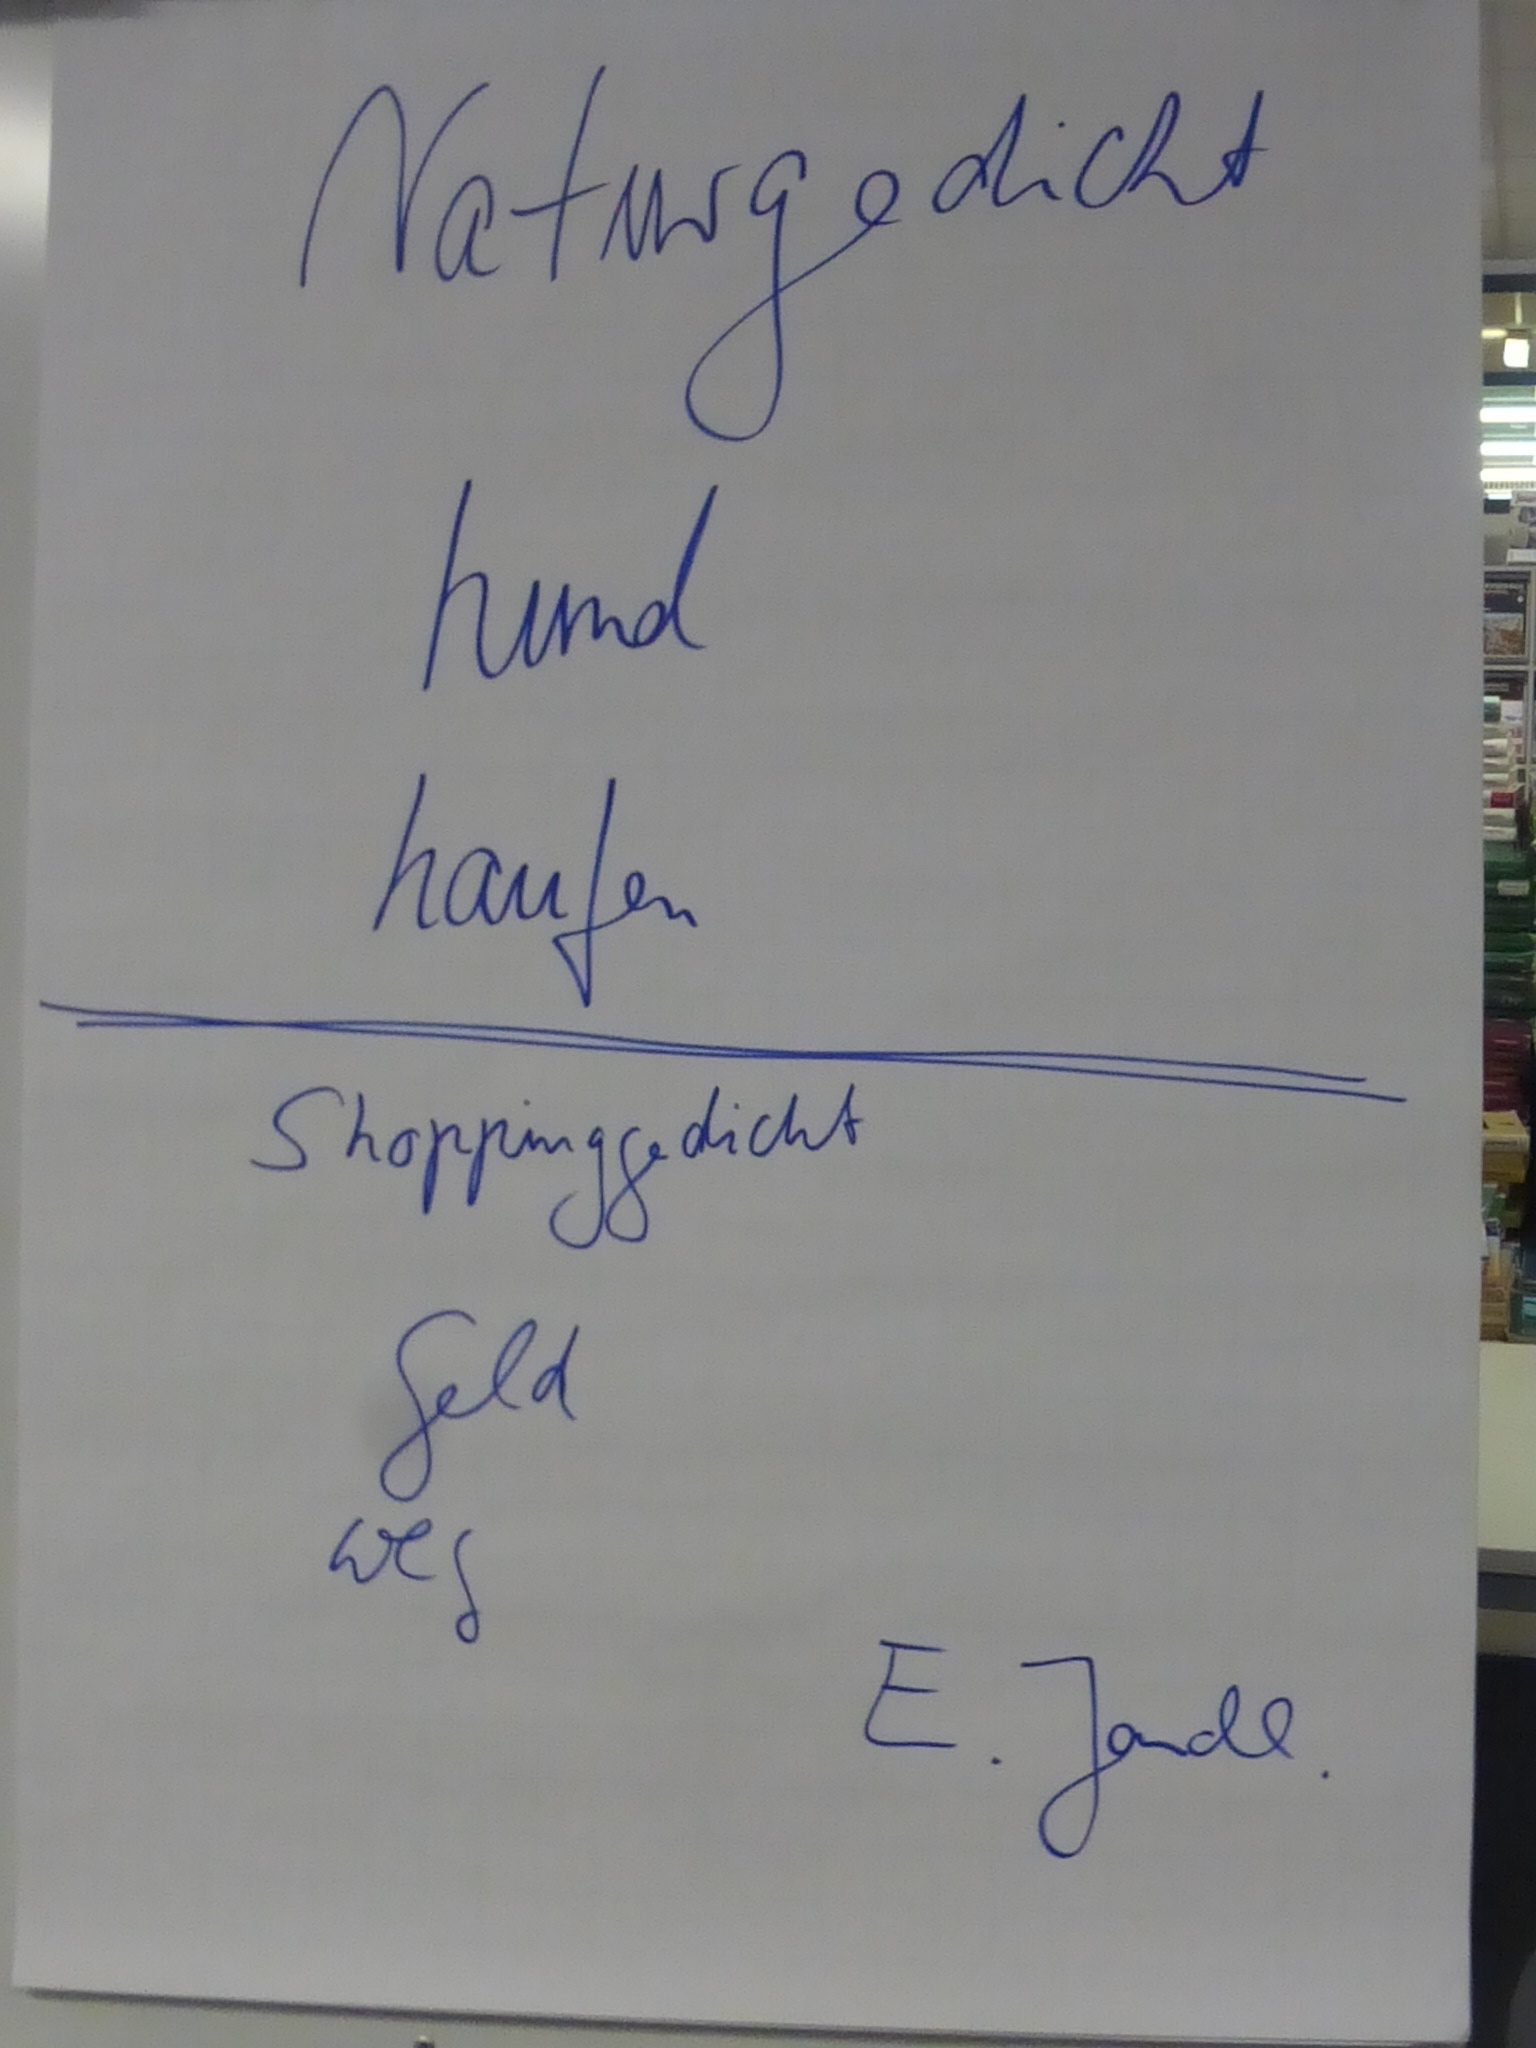 Naturgedicht
hund
haufen
Shoppinggedicht
Geld
weg
E. Jandl.